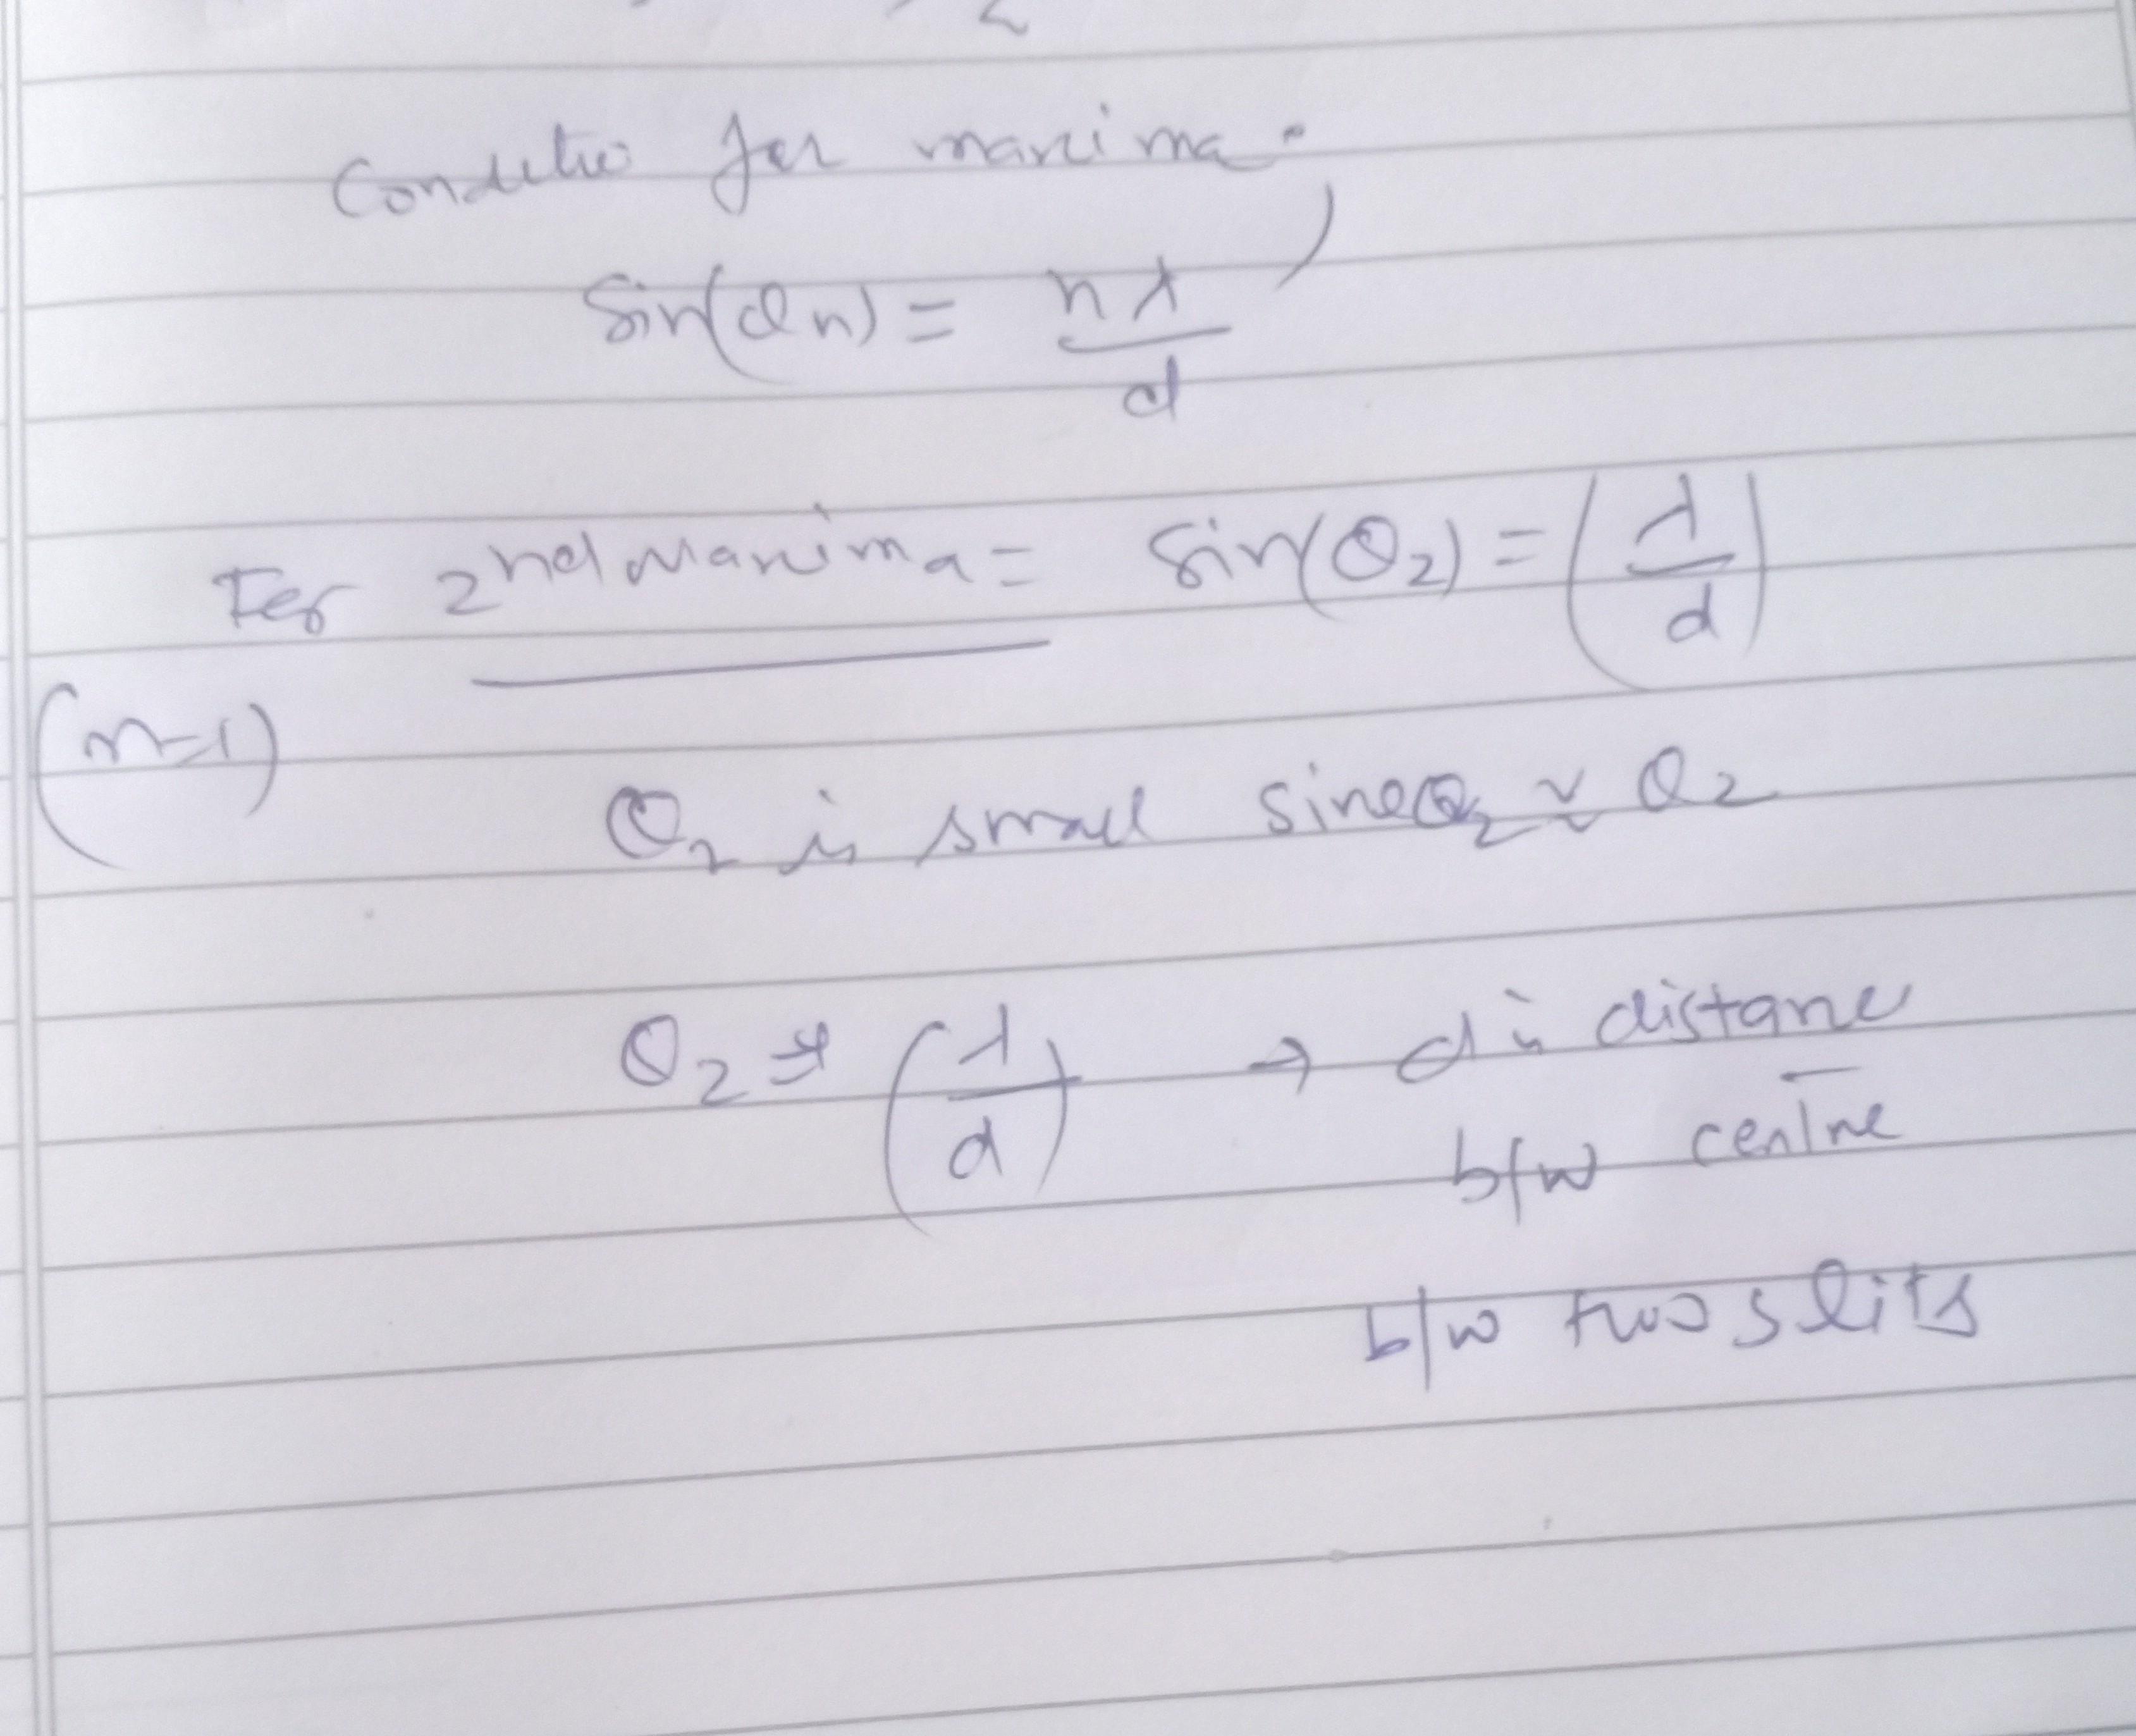 Condition for maxima:
Sin(θn) = nλ/d
For 2nd Maxima = Sin(θ2) = (λ/d)
(n=1)
θ2 is small sineθ2 ≈ θ2
θ2 = (λ/d) → d is distance
b/w centre
b/w two slits